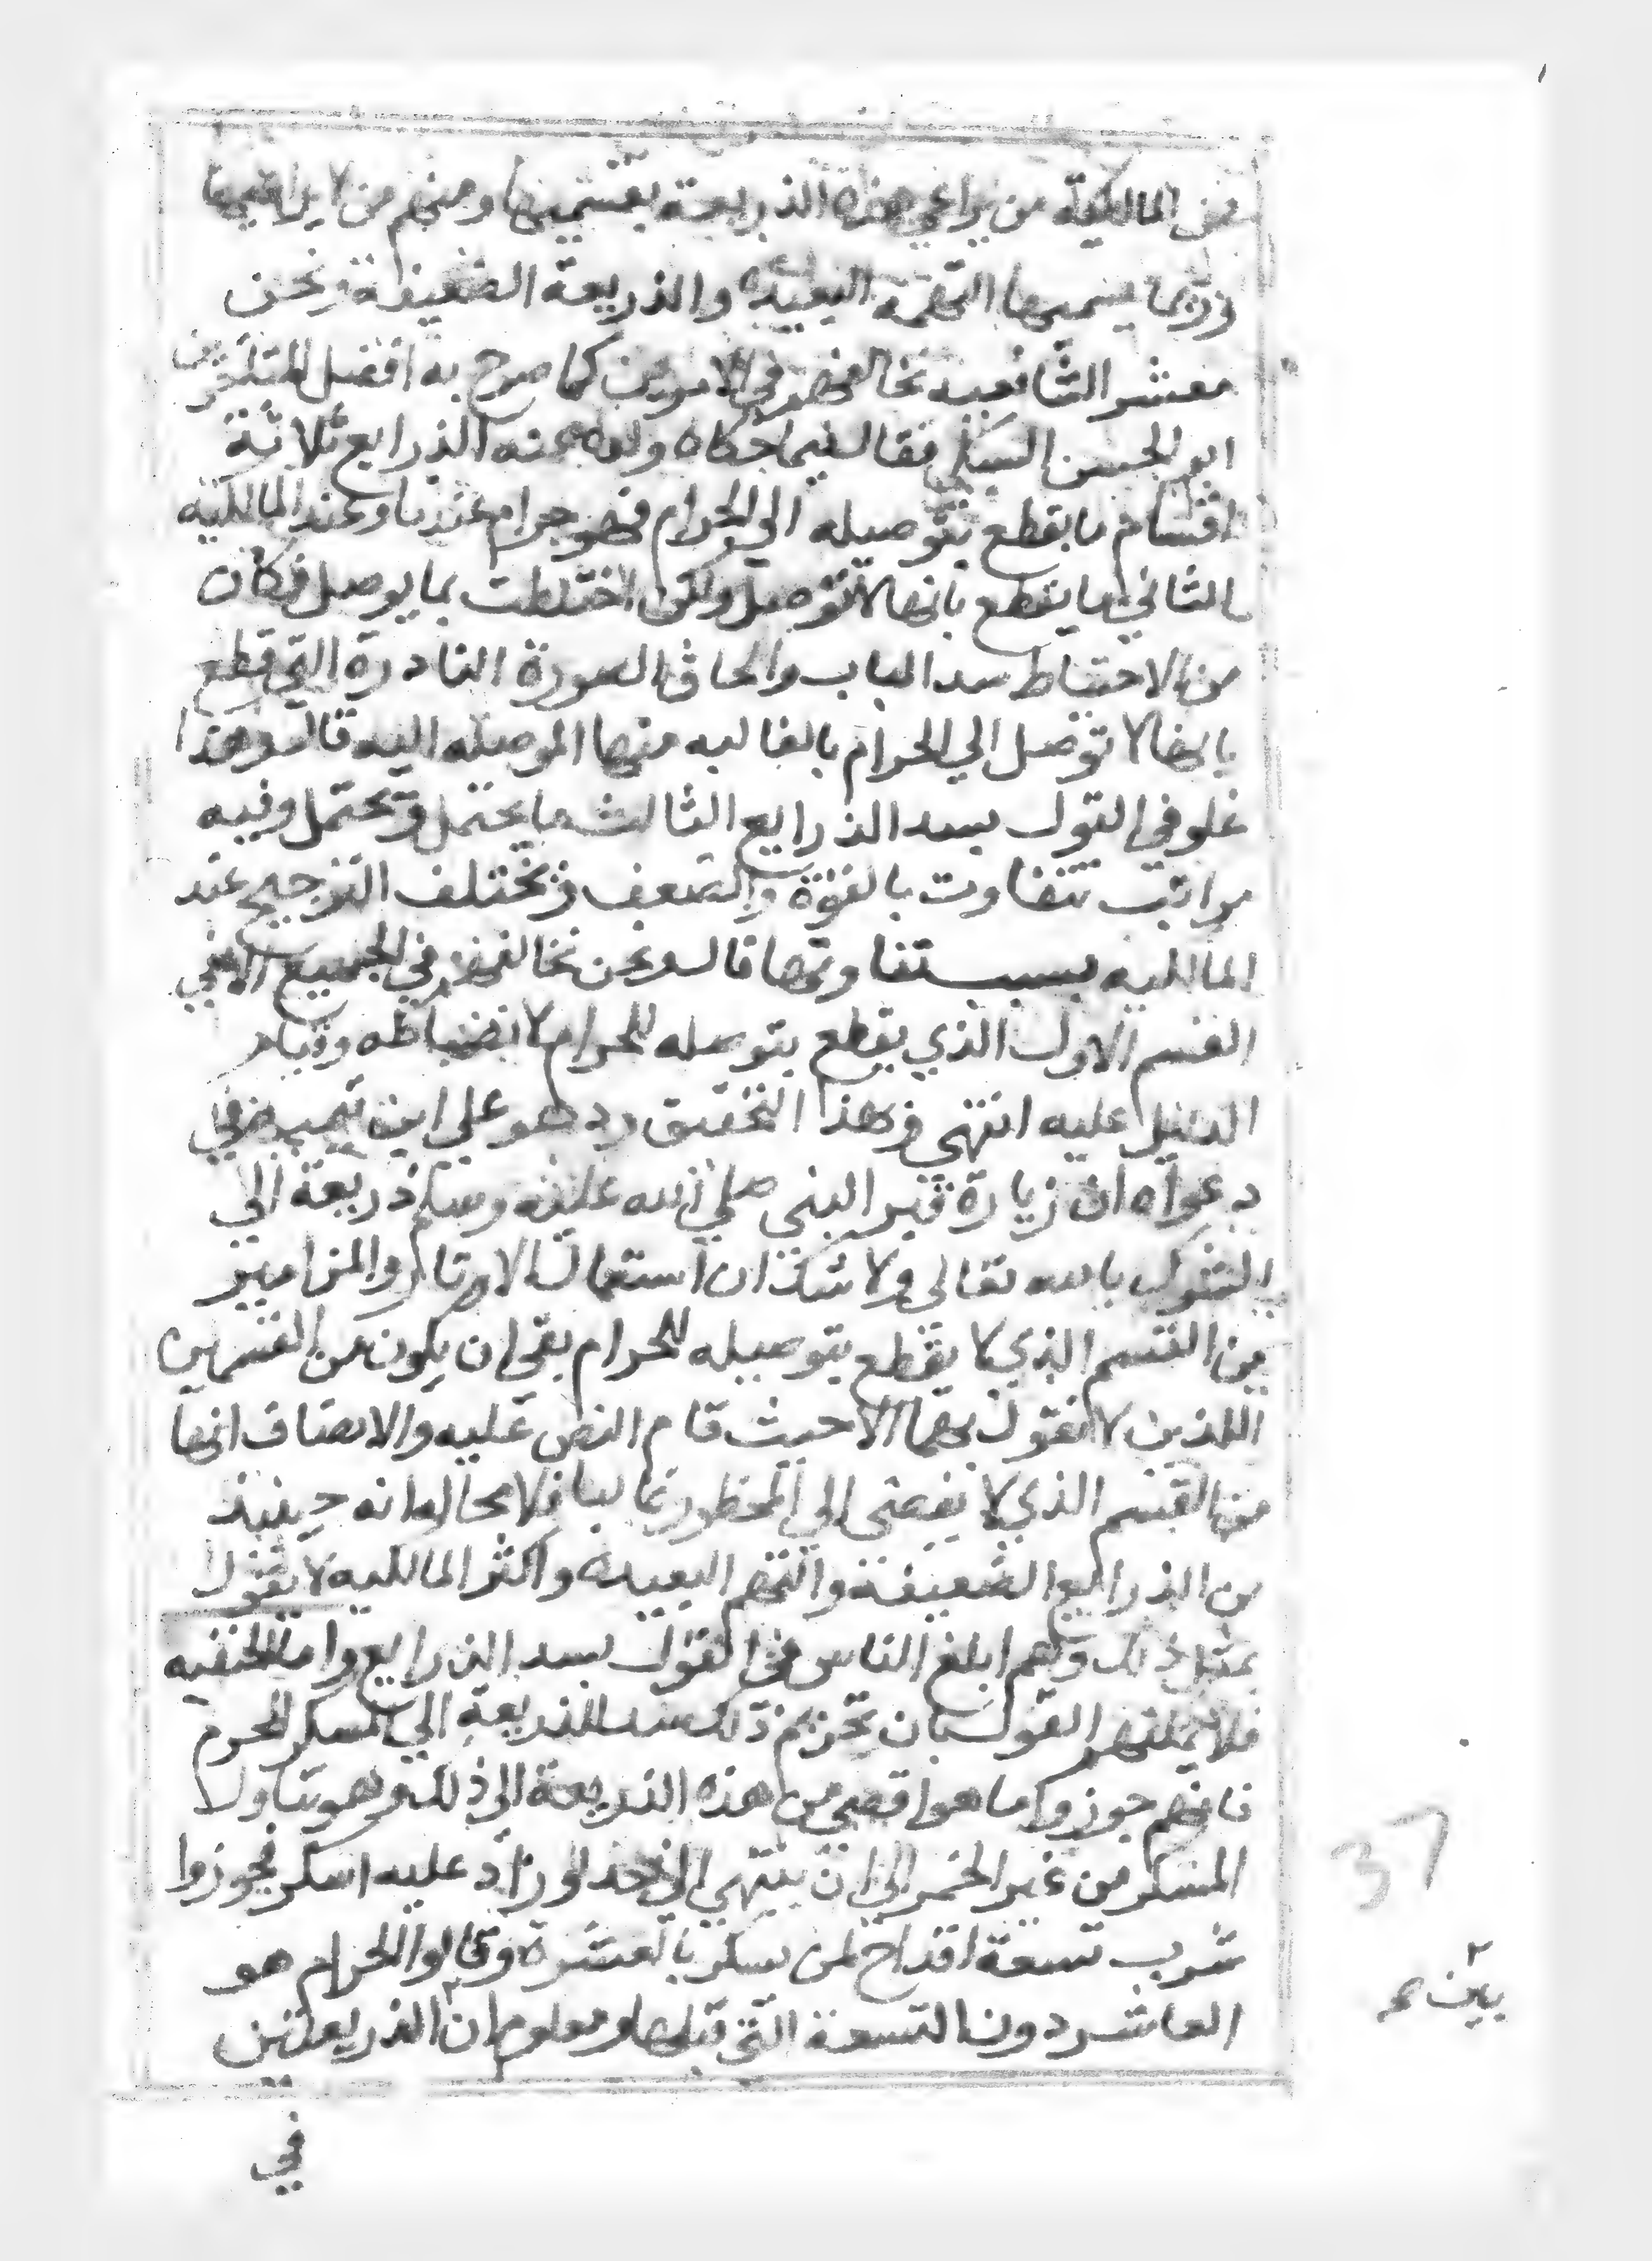 فمن المالكية من يراعي هذه الذريعة بقسميها ومنهم من لا يراعيها
وربما يسميها التهمة البعيدة والذريعة الضعيفة ونحن
معشر الشافعية نخالفهم في الامرين كما صرح به افضل المتاخرين
ابو الحسن السبكي فقال فيما حكاه ولده عنه الذرايع ثلاثة
اقسام ما يقطع بتوصيله الي الحرام فهو حرام عندنا وعند المالكيه
الثاني ما يقطع بانها لا توصل ولكن اختلطت بما يوصل فكان
من الاحتياط سد الباب والحاق الصورة النادرة التي قطع
بانها لا توصل الي الحرام بالغالبه منها الموصله اليه قال وهذا
غلو في القول بسد الذرايع الثالث ما يحتمل ويحتمل وفيه
مراتب تتفاوت بالقوة والضعف ويختلف الترجيح عند
المالكيه بسبب تفاوتها قال ونحن نخالفهم في الجميع الا في
القسم الاول الذي يقطع بتوصله للحرام لانضباطه وقيام
الدليل عليه انتهي وبهذا التحقيق رد هو علي ابن تيميه في
دعواه ان زيارة قبر النبي صلي الله عليه وسلم ذريعة الي
الشرك بالله تعالي ولا شك ان استعمال الاوتار والمزامير
من القسم الذي لا يقطع بتوصيله للحرام بقي ان يكون من القسمين
اللذين لا نقول بهما الا حيث قام النص عليه والانصاف انها
من القسم الذي لا يفضي الي المحظور غالبا فلا محالة انه حينيذ
من الذرايع الضعيفة والتهم البعيده واكثر المالكيه لا يقول
بمثل ذلك وهم ابلغ الناس في القول بسد الذرايع واما الحنفيه
فلا يمكنهم القول بان تحريم ذلك سد للذريعة الي المسكر المحرم
فانهم جوزوا ما هو اقصي من هذه الذريعة الي ذلك وهو تناول
المسكر من غير الخمر الي ان ينتهي الي حد لو زاد عليه اسكر فجوزوا
شرب تسعة اقداح لمن يسكر بالعشرة وقالوا الحرام هو
العاشر دون التسعة التي قبلها ومعلوم ان الذريعتين
في
37